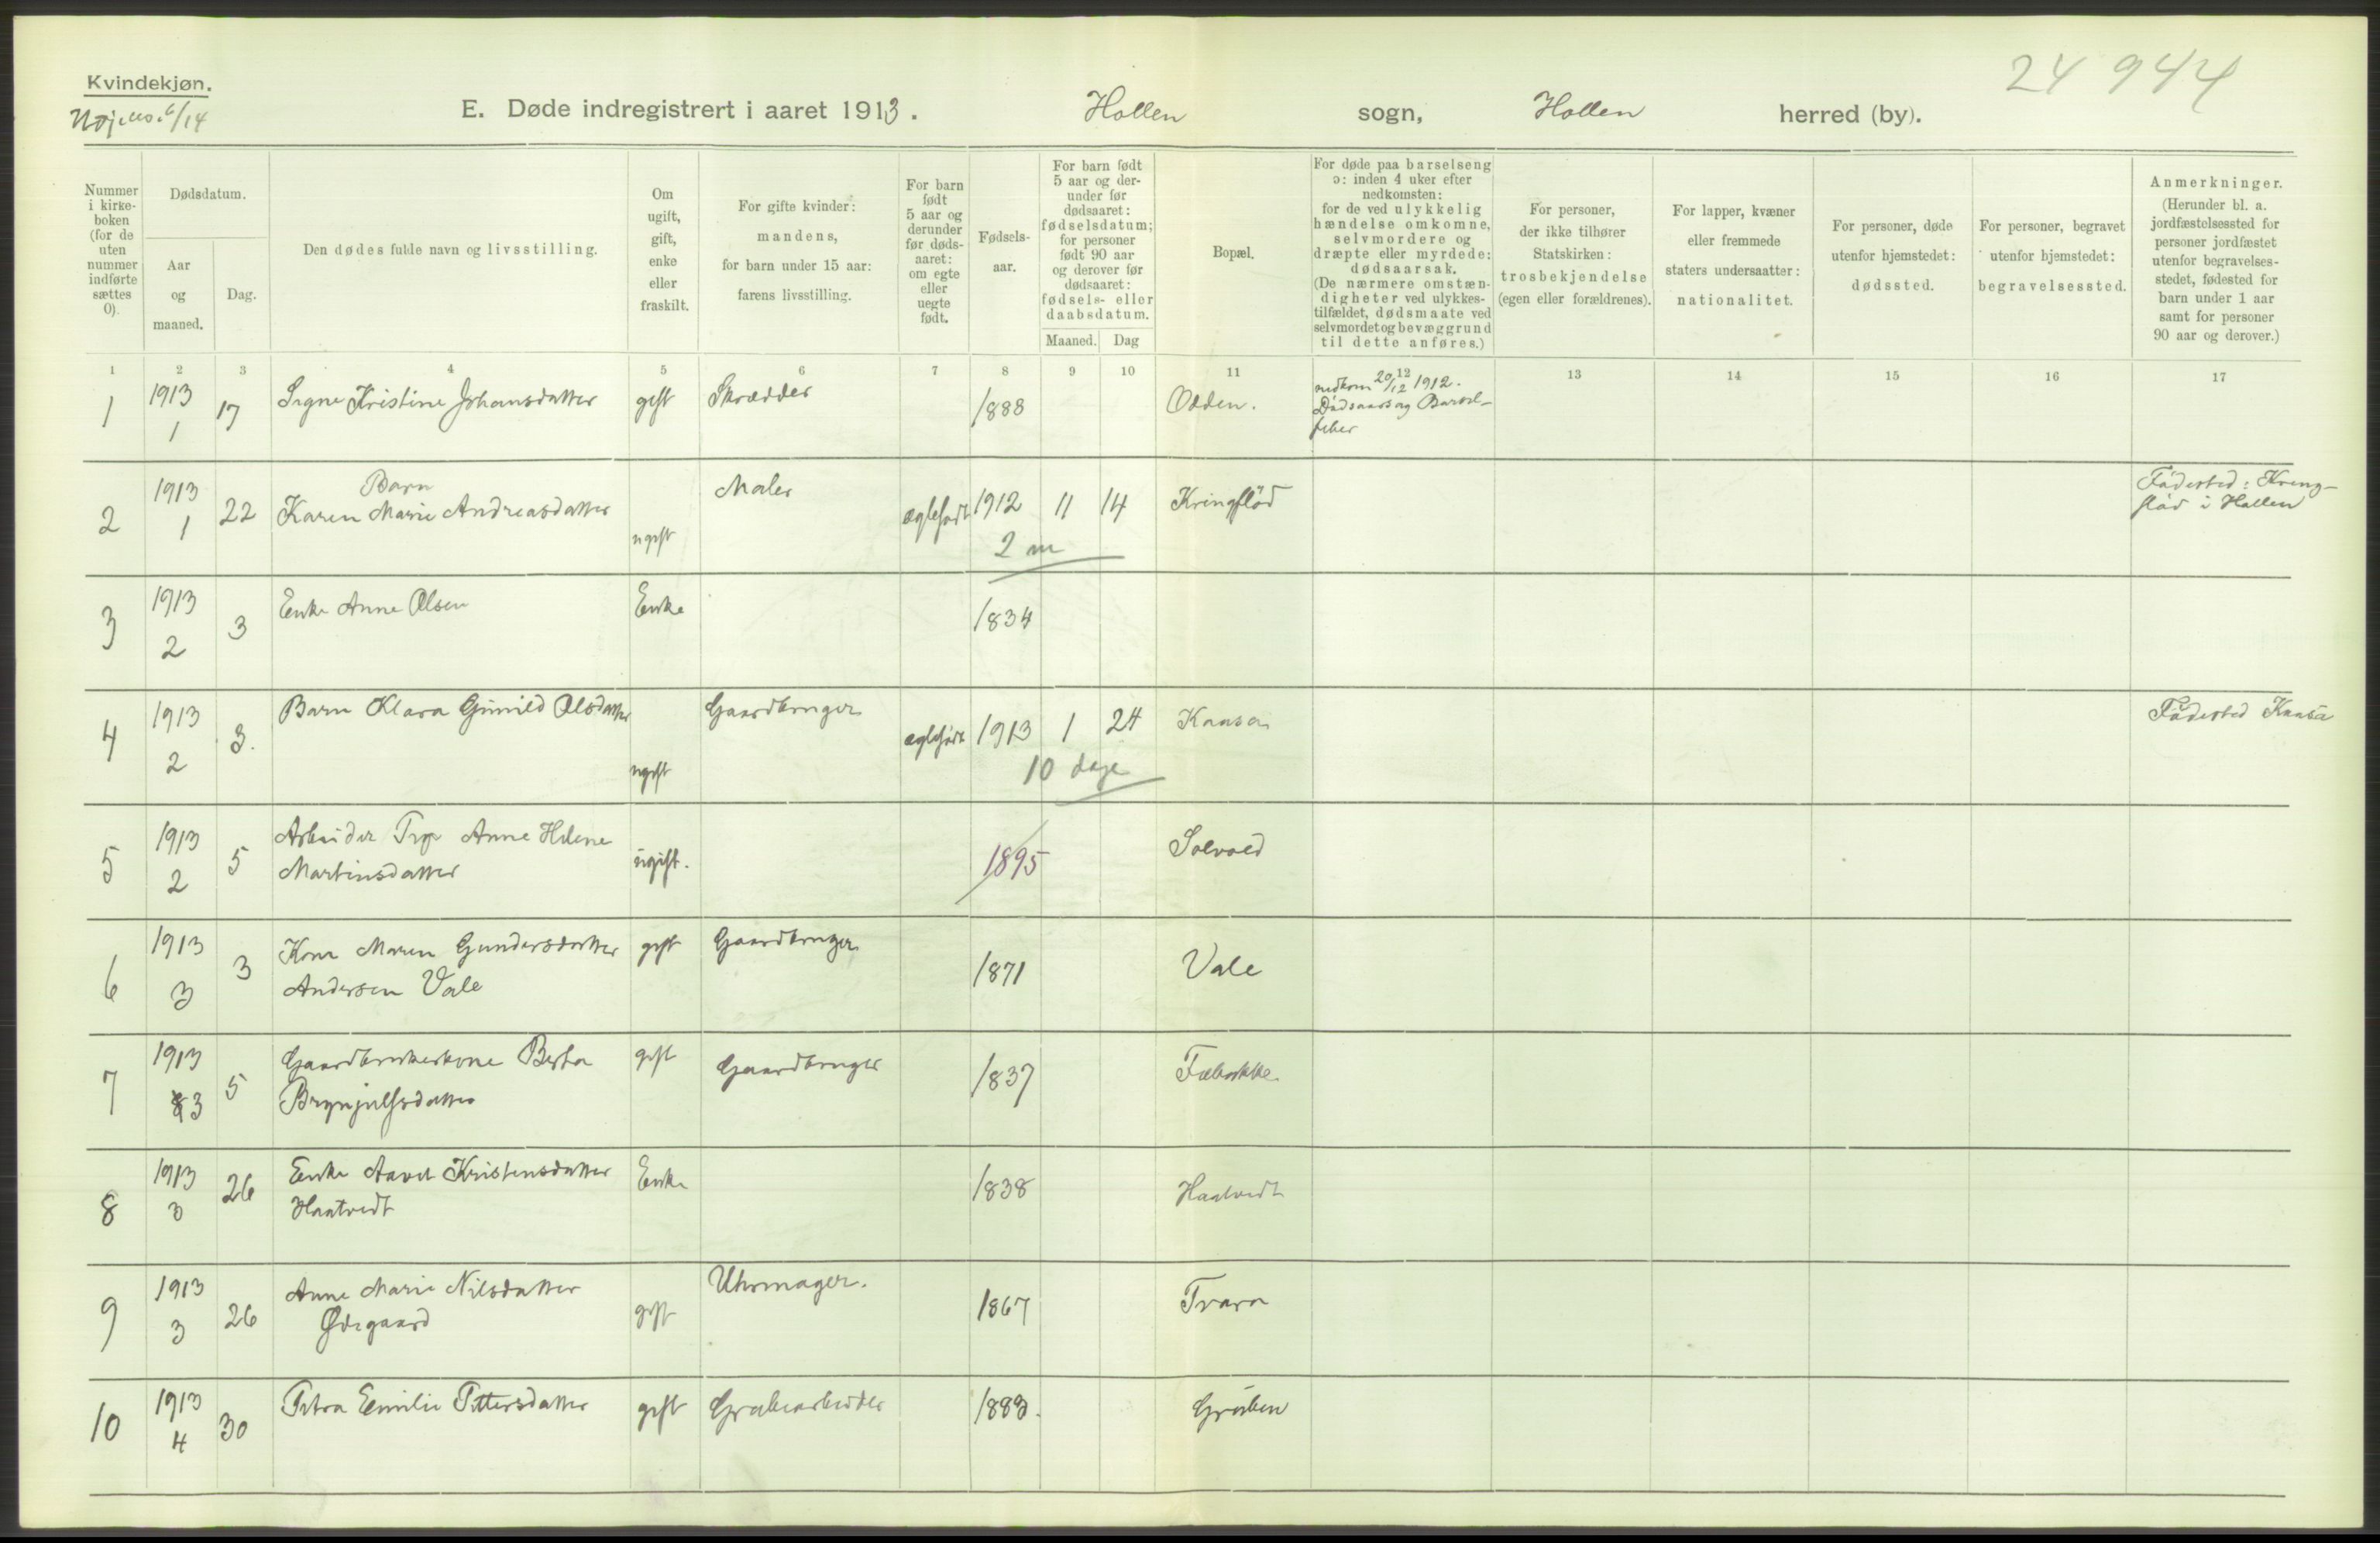 Kvindekjøn.
24 944
6/14
E. Døde indregistrert i aaret 1913. Hollen sogn, Hollen herred (by).
Nummer i kirke-boken (for de uten nummer indførte sættes 0).
Dødsdatum.
Aar og maaned.
Dag.
Den dødes fulde navn og livsstilling.
Om ugift, gift, enke eller fraskilt.
For gifte kvinder: mandens, for barn under 15 aar: farens livsstilling.
For barn født 5 aar og derunder før døds-aaret: om egte eller uegte født.
Fødsels-aar.
For barn født 5 aar og der-under før dødsaaret: fødselsdatum; for personer født 90 aar og derover før dødsaaret: fødsels- eller daabsdatum.
Maaned. Dag
Bopæl.
For døde paa barselseng ɔ: inden 4 uker efter nedkomsten: for de ved ulykkelig hændelse omkomne, selvmordere og dræpte eller myrdede: dødsaarsak. (De nærmere omstæn-digheter ved ulykkes-tilfældet, dødsmaate ved selvmordet og bevæggrund til dette anføres.)
For personer, der ikke tilhører Statskirken: trosbekjendelse (egen eller forældrenes).
For lapper, kvæner eller fremmede staters undersaatter: nationalitet.
For personer, døde utenfor hjemstedet: dødssted.
For personer, begravet utenfor hjemstedet: begravelsessted.
Anmerkninger. (Herunder bl. a. jordfæstelsessted for personer jordfæstet utenfor begravelses-stedet, fødested for barn under 1 aar samt for personer 90 aar og derover.)
1 2 3 4 5 6 7 8 9 10 11 12 13 14 15 16 17
1 1913 1 17 Signe Kristine Johansdatter gift Skrædder 1888 Odden. nedkom 20/12 1912. Dødsaarsag Barsel-feber
2 1913 1 22 Barn Karen Marie Andreasdatter ugift Maler ægtefødt 1912 11 14 Kringflød Fødested: Kring-flød i Hollen
2 m
3 1913 2 3 Enke Anne Olsen Enke 1834
4 1913 2 3. Barn Klara Gunild Olsdatter ugift Gaardbruger ægtefødt 1913 1 24 Kaasa Fødested Kaasa
10 dage
5 1913 2 5 Arbeider Pige Anne Helene Martinsdatter ugift. 1895 Solvold
6 1913 3 3 Kone Maren Gundersdatter Andersen Vale gift Gaardbruger 1871 Vale
7 1913 3 5 Gaardbrukerkone Berta Brynjulfsdatter gift Gaardbruger 1837 Fæbakke
8 1913 3 26 Enke Kristensdatter Haatvedt Enke 1838 Haatvedt
9 1913 3 26 Anne Marie Nilsdatter Ødegaard gift Uhrmager. 1867 Tvara
10 1913 4 30 Petra Emilie Pettersdatter gift Grubearbeider 1883. Gruben